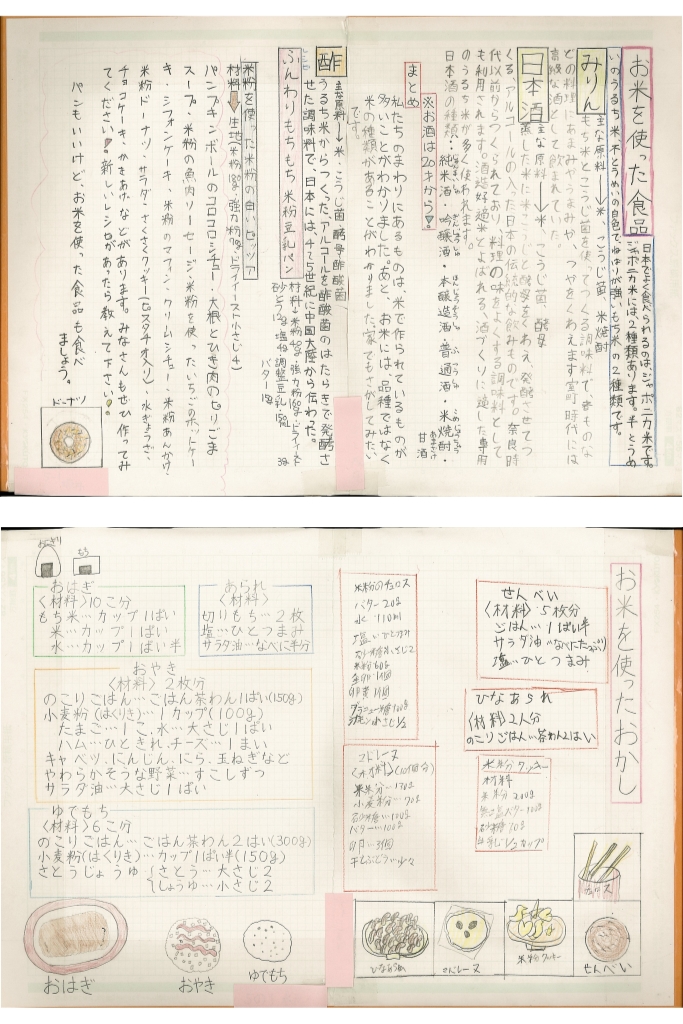 お米を使った食品
日本でよく食べられるのは、ジャポニカ米です。
ジャポニカ米には、2種類あります。半とうめ
いのうるち米、不とうめいの白色で、ねばりが強いもち米の2種類です。
みりん
主な原料→米、こうじ菌、米焼酎
もち米とこうじ菌を使ってつくる調味料で、煮ものな
どの料理にあまみやうまみや、つやをくわえます。室町時代には
高級な酒として飲まれていた。
日本酒
主な原料→米、こうじ菌、酵母
蒸した米に米こうじと酵母をくわえ、発酵させてつ
くる、アルコールの入った日本の伝統的な飲みものです。奈良時
代以前からつくられており、料理の味をよくする調味料として
も利用されます。酒造好適米とよばれる、酒づくりに適した専用
のうるち米が多く使われます。
日本酒の種類・純米酒・吟醸酒・本醸造酒・普通酒・米焼酎・
甘酒
※お酒は20才から
まとめ
私たちのまわりにあるものは、米で作られているものが
多いことがわかりました。あと、お米には、品種ではなく
米の種類があることがわかりました。家でもさがしてみたい
です。
酢
主な原料→米、こうじ菌、酵母、酢酸菌
うるち米からつくった、アルコールを酢酸菌のはたらきで発酵さ
せた調味料で、日本には、4〜5世紀に中国大陸から伝わった。
ふんわりもちもち米粉豆乳パン
バター
米粉を使った米粉の白いピッツァ
パンプキンボールのコロコロシチュー・大根とひき肉のピリごま
スープ・米粉の魚肉ソーセージ・米粉を使ったいちごのホットケー
キ・シフォンケーキ・米粉のマフィン・クリームシチュー・米粉あんかけ・
米粉ドーナツ・サラダ・さくさくクッキー(ピスタチオ入り)・水ぎょうざ、
チョコケーキ・かきあげなどがあります。みなさんもぜひ作ってみ
てください!新しいレシピがあったら教えて下さい。
パンもいいけど、お米を使った食品も食べ
ましょう。
ドーナツ
お米を使ったおかし
せんべい
〈材料〉5枚分
ごはん…1ぱい半
塩…ひとつまみ
ひなあられ
〈材料〉2人分
のこりごはん…茶わん2はい
米粉クッキー
材料
米粉200g
無塩バター100g
砂糖70g
米粉のチュロス
バター20g
水 110ml
米粉60g
〈材料〉(10個分)
小麦粉…90g
砂糖…100g
バター…100g
卵…3個
おにぎり
もち
あられ
〈材料〉
切りもち…2枚
塩…ひとつまみ
サラダ油…なべに半分
おはぎ
〈材料〉10こ分
もち米…カップ1ぱい
米…カップ1ぱい
水…カップ1ぱい半
おやき
〈材料〉2枚分
のこりごはん…ごはん茶わん1ぱい(150g)
小麦粉(はくりき)…1カップ(100g)
たまご…1こ、水…大さじ1ぱい
ハム…ひときれ、チーズ…1まい
キャベツ、にんじん、にら、玉ねぎなど
やわらかそうな野菜…すこしずつ
サラダ油…大さじ1ぱい
ゆでもち
〈材料〉6こ分
のこりごはん…ごはん茶わん2はい(300g)
小麦粉(はくりき)…カップ1ぱい半(150g)
さとうじょうゆ{さとう…大さじ2
しょうゆ…小さじ2
チュロス
せんべい
米粉クッキー
ひなあられ
ゆでもち
おやき
おはぎ